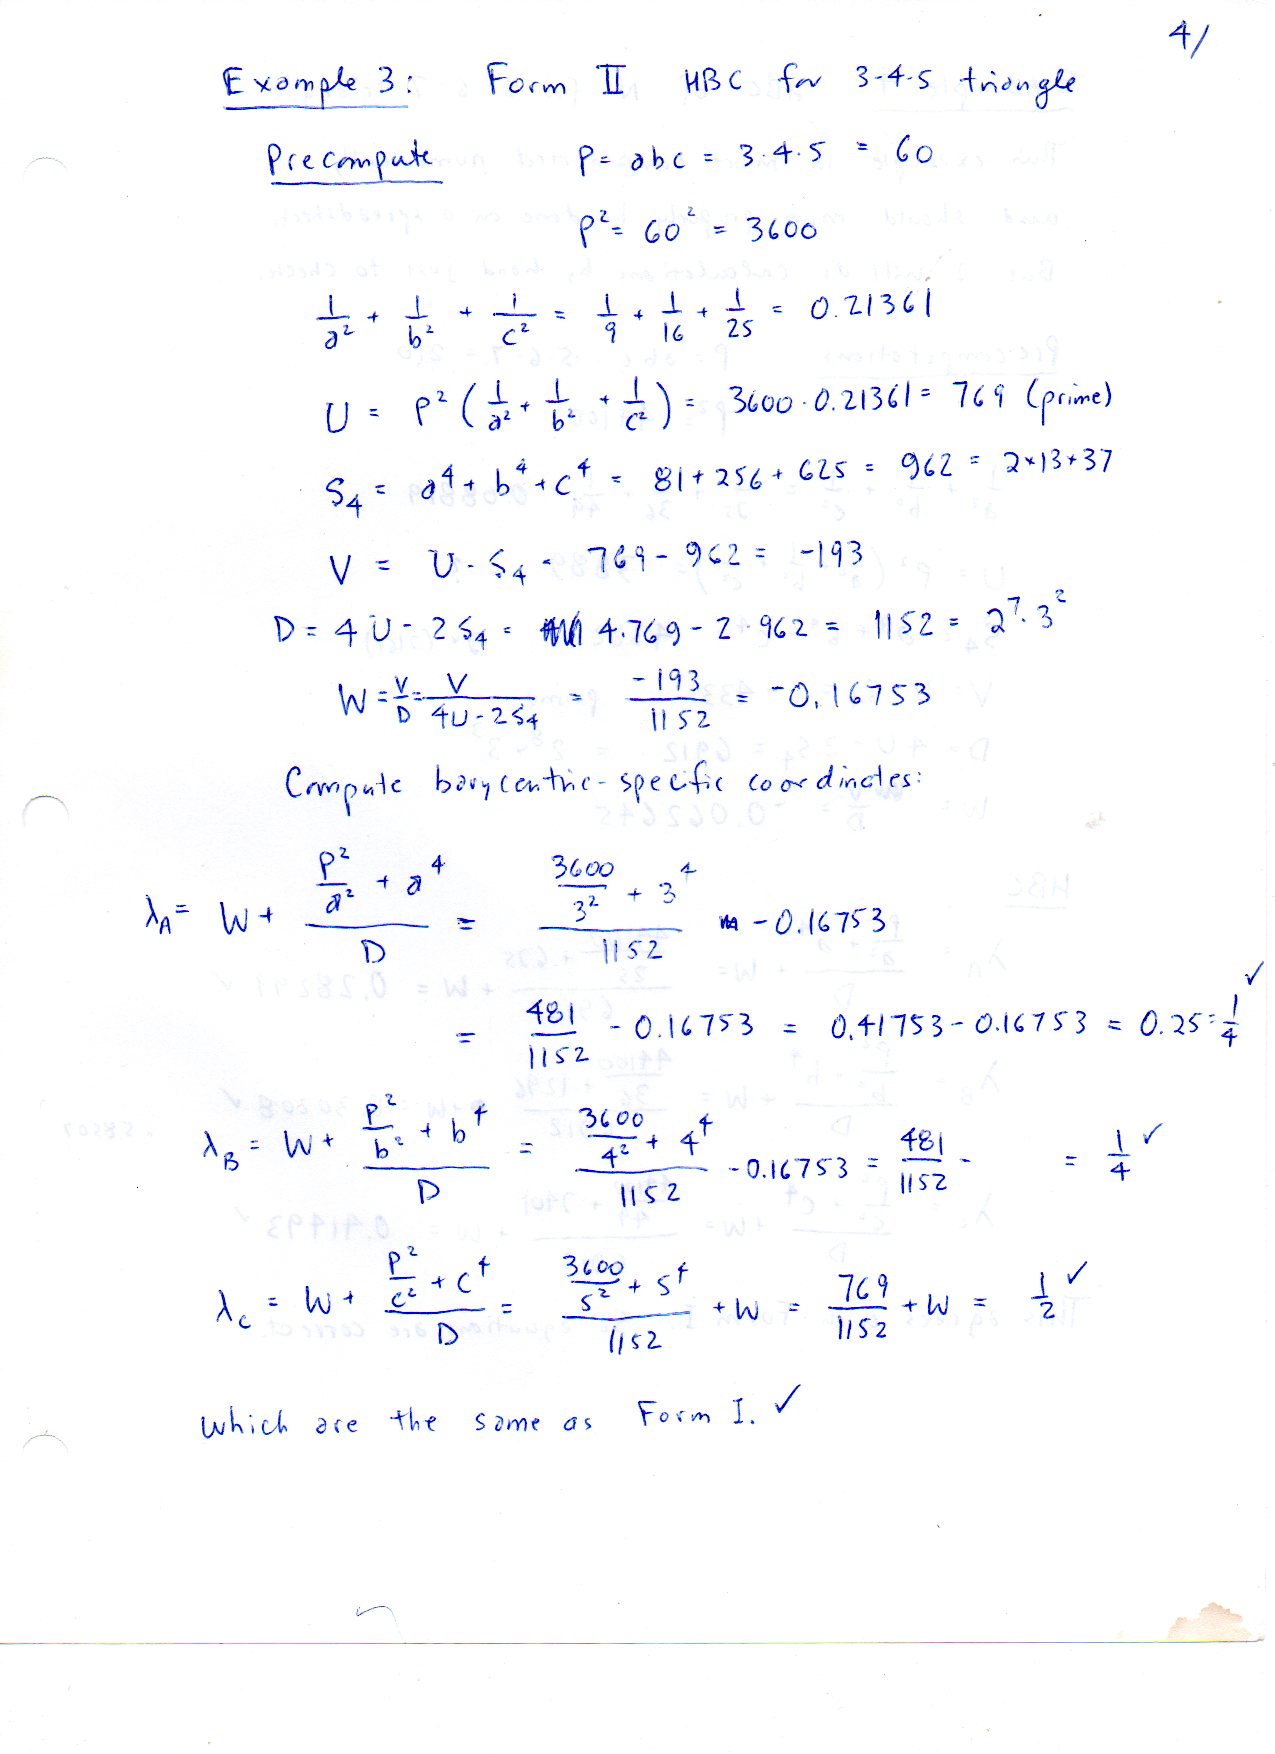 4/
Example 3: Form II HBC for 3-4-5 triangle
Precompute P = abc = 3·4·5 = 60
P² = 60² = 3600
1/a² + 1/b² + 1/c² = 1/9 + 1/16 + 1/25 = 0.21361
U = P² (1/a² + 1/b² + 1/c²) = 3600 · 0.21361 = 769 (prime)
S₄ = a⁴ + b⁴ + c⁴ = 81 + 256 + 625 = 962 = 2*13*37
V = U - S₄ = 769 - 962 = -193
D = 4U - 2S₄ = 4·769 - 2·962 = 1152 = 2⁷·3²
W = V/D = V/(4U - 2S₄) = -193/1152 = -0.16753
Compute barycentric-specific coordinates:
λ_A = W + (P²/a² + a⁴)/D = (3600/3² + 3⁴)/1152 - 0.16753
= 481/1152 - 0.16753 = 0.41753 - 0.16753 = 0.25 = 1/4 ✓
λ_B = W + (P²/b² + b⁴)/D = (3600/4² + 4⁴)/1152 - 0.16753 = 481/1152 - = 1/4 ✓
λ_C = W + (P²/c² + c⁴)/D = (3600/5² + 5⁴)/1152 + W = 769/1152 + W = 1/2 ✓
which are the same as Form I. ✓